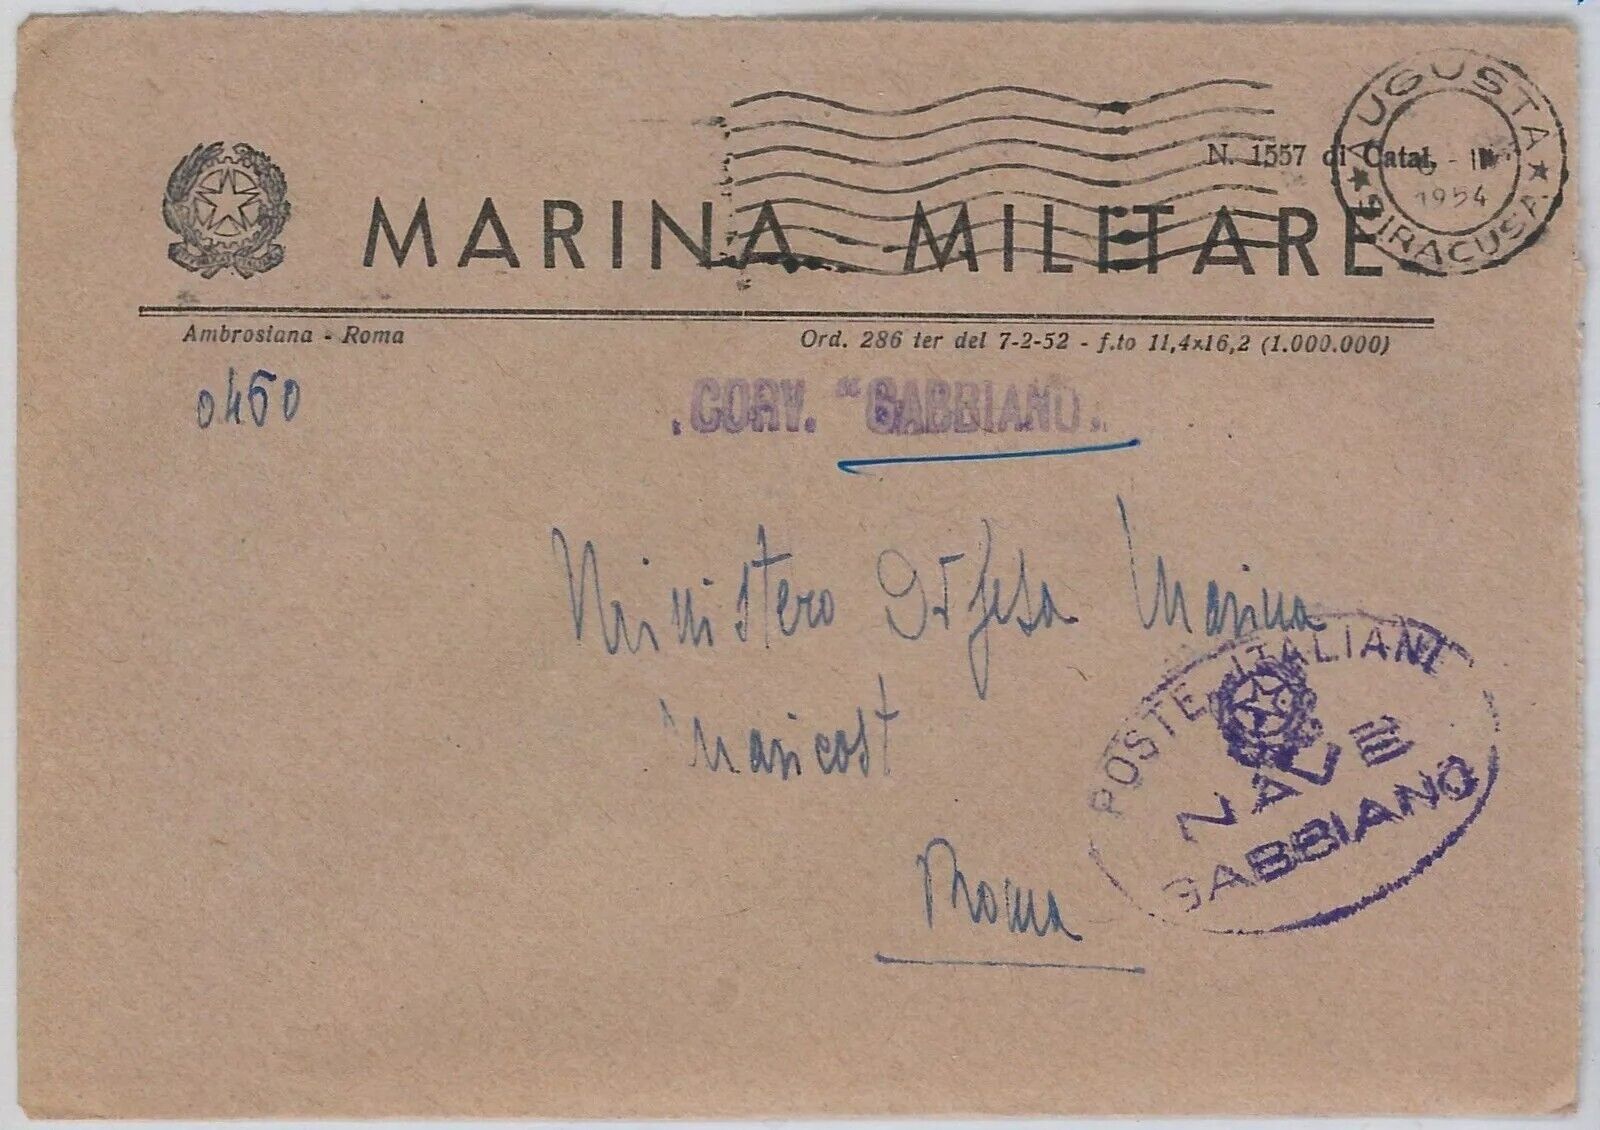 AUGUSTA
SIRACUSA
1954
N. 1557 di Catal.
MARINA MILITARE
Ambrosiana - Roma
Ord. 286 ter del 7-2-52 - f.to 11,4x16,2 (1.000.000)
0460
CORV. "GABBIANO"
Ministero Difesa Marina
Maricost
Roma
POSTE ITALIANE
NAVE
GABBIANO